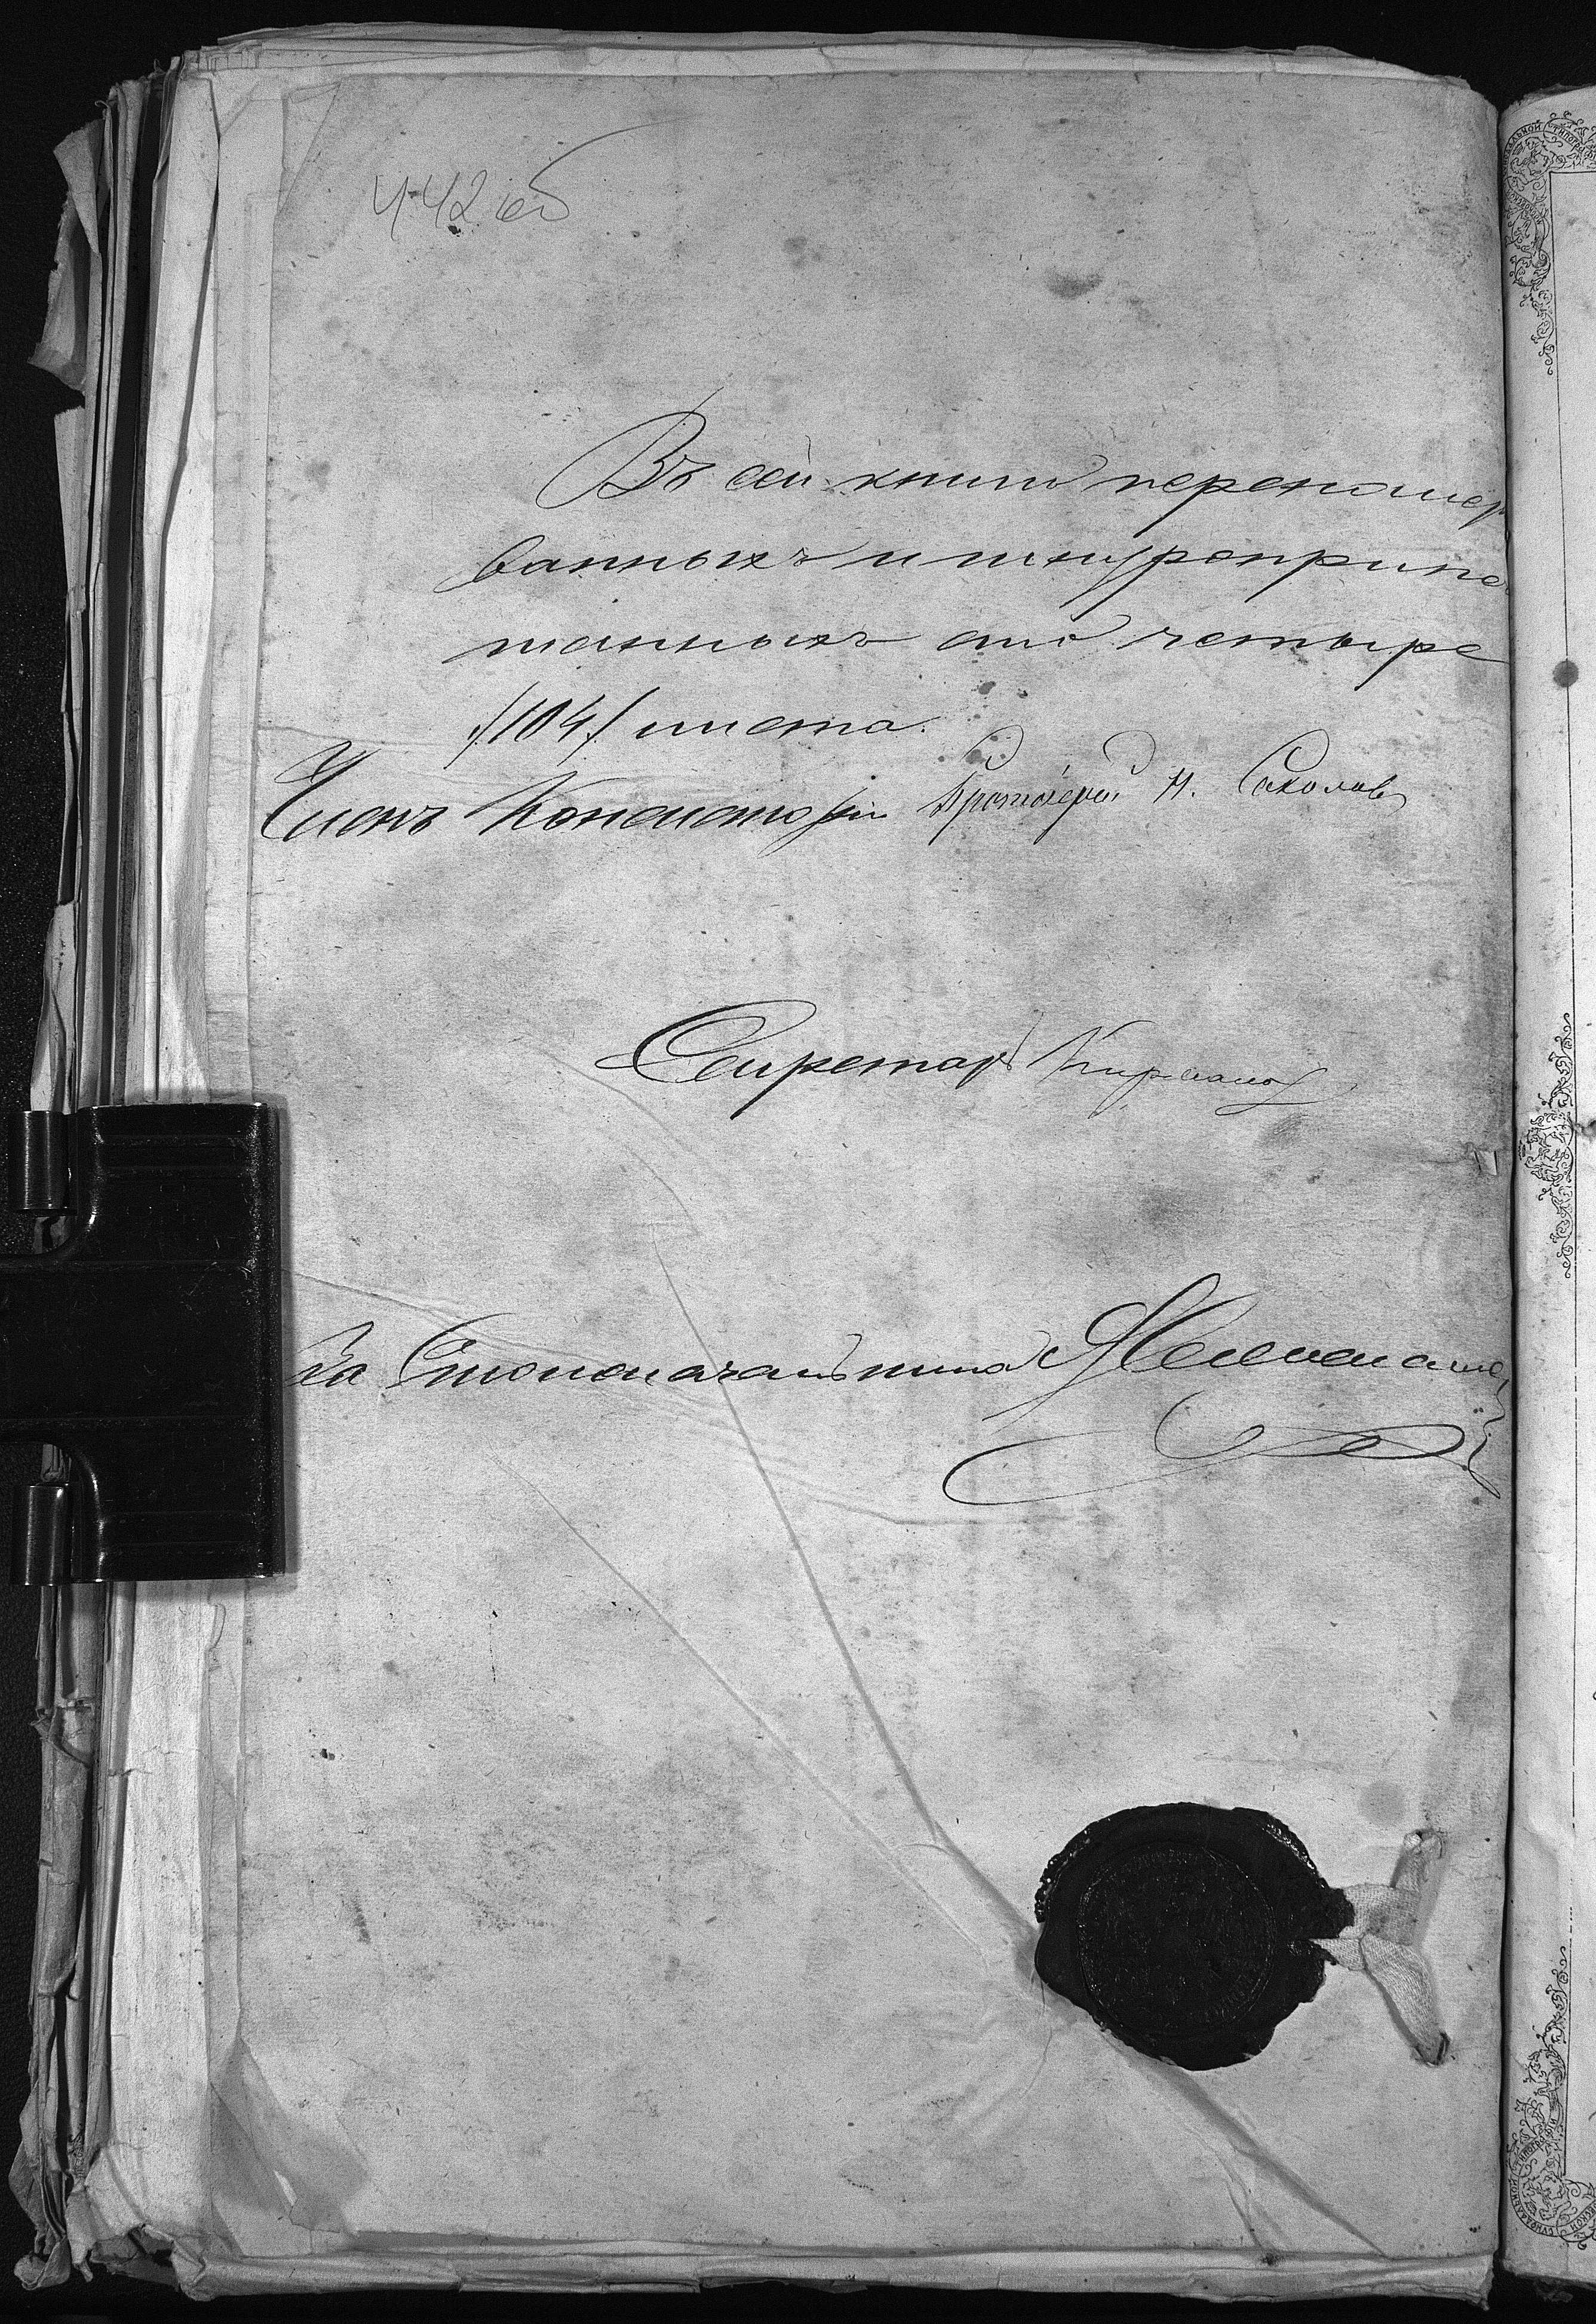 442 об
Въ сей книгѣ перенумеро
ванныхъ и шнуроприпе
чатанныхъ сто четыре
/104/ листа.
Членъ Консисторіи Протоіерей Н. Соколовъ
Секретарь
За Столоначальника